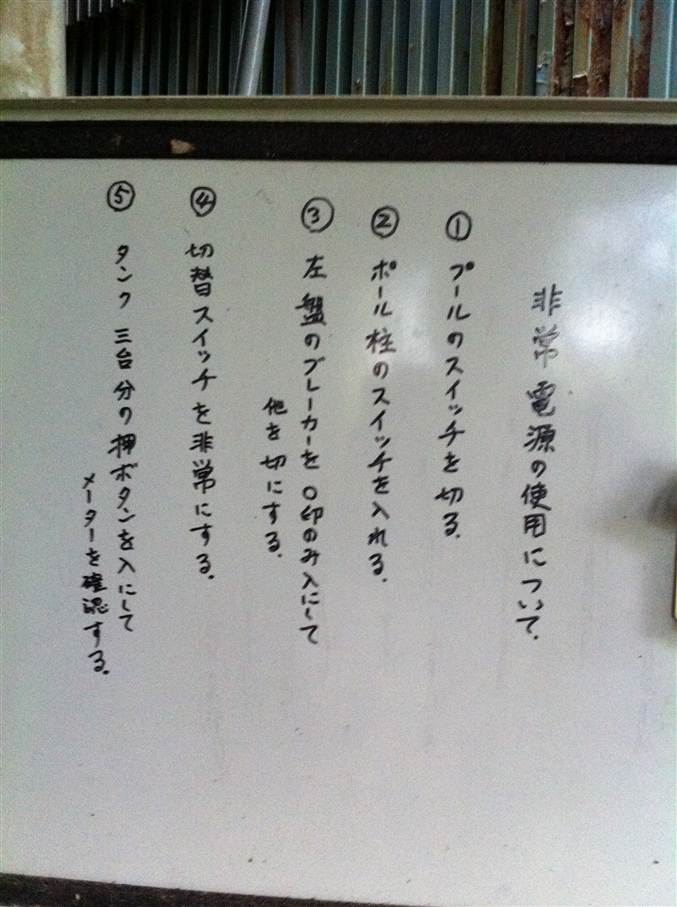 非常電源の使用について.
① プールのスイッチを切る.
② ポール柱のスイッチを入れる.
③ 左盤のブレーカーを○印のみ入にして
他を切にする.
④ 切替スイッチを非常にする.
⑤ タンク三台分の押ボタンを入にして
メーターを確認する.